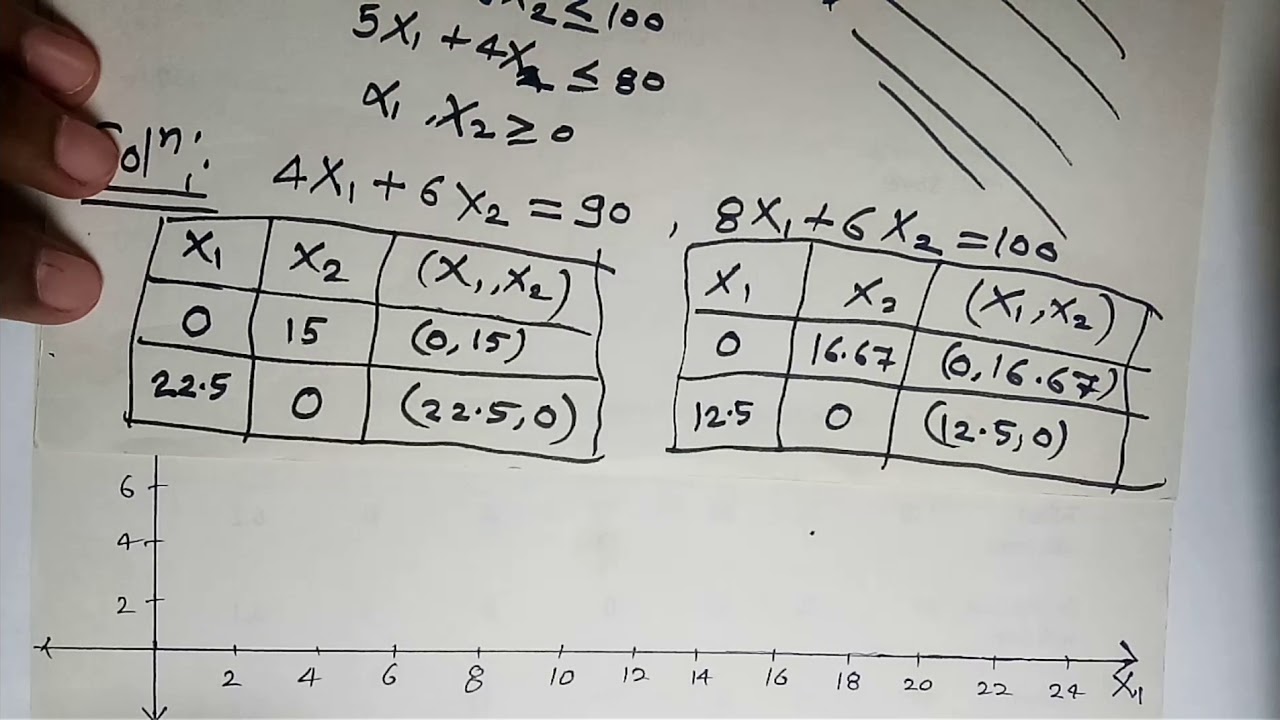 X₂ ≤ 100
5X₁ + 4X₂ ≤ 80
X₁, X₂ ≥ 0
Solⁿ:
4X₁ + 6X₂ = 90 , 8X₁ + 6X₂ = 100
X₁ X₂ (X₁, X₂)
0 15 (0, 15)
22.5 0 (22.5, 0)
X₁ X₂ (X₁, X₂)
0 16.67 (0, 16.67)
12.5 0 (12.5, 0)
6
4
2
2 4 6 8 10 12 14 16 18 20 22 24 X₁